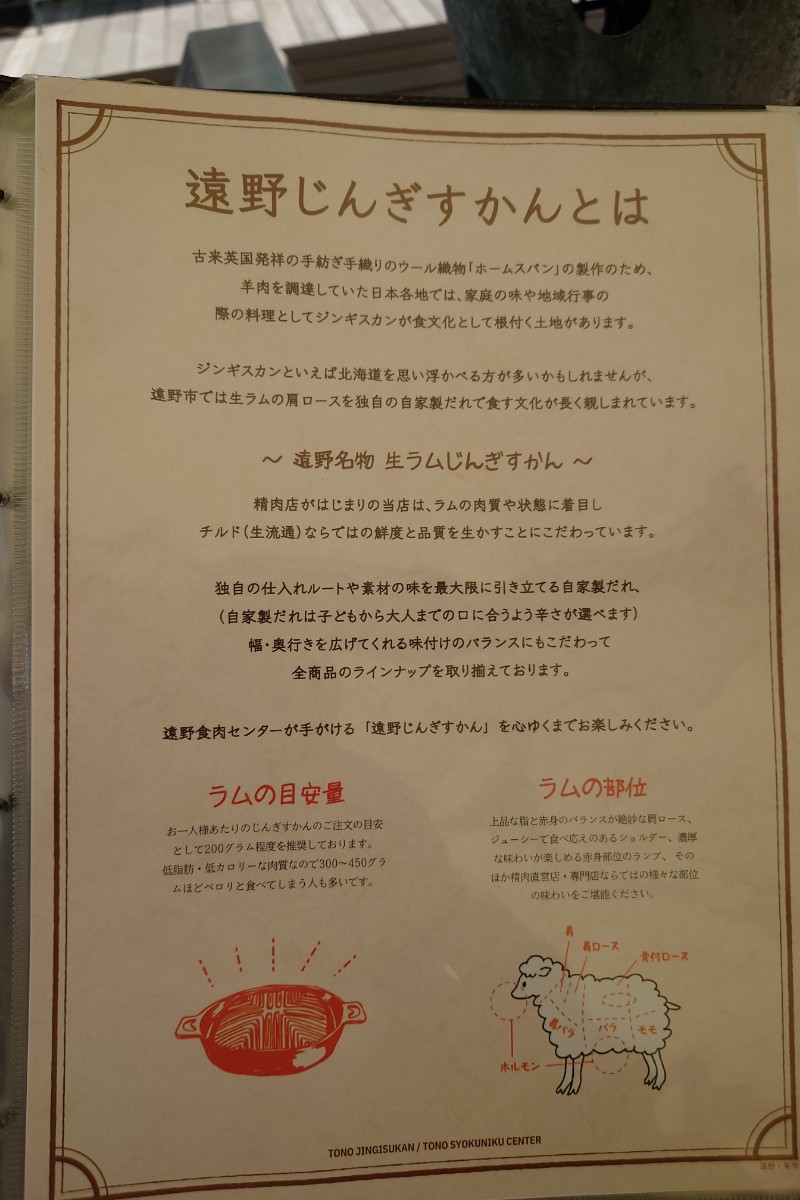 遠野じんぎすかんとは
古来英国発祥の手紡ぎ手織りのウール織物「ホームスパン」の製作のため、
羊肉を調達していた日本各地では、家庭の味や地域行事の
際の料理としてジンギスカンが食文化として根付く土地があります。
ジンギスカンといえば北海道を思い浮かべる方が多いかもしれませんが、
遠野市では生ラムの肩ロースを独自の自家製だれで食す文化が長く親しまれています。
～ 遠野名物 生ラムじんぎすかん ～
精肉店がはじまりの当店は、ラムの肉質や状態に着目し
チルド(生流通)ならではの鮮度と品質を生かすことにこだわっています。
独自の仕入れルートや素材の味を最大限に引き立てる自家製だれ、
(自家製だれは子どもから大人までの口に合うよう辛さが選べます)
幅・奥行きを広げてくれる味付けのバランスにもこだわって
全商品のラインナップを取り揃えております。
遠野食肉センターが手がける「遠野じんぎすかん」を心ゆくまでお楽しみください。
ラムの目安量
お一人様あたりのじんぎすかんのご注文の目安
として200グラム程度を推奨しております。
低脂肪・低カロリーな肉質なので300〜450グラ
ムほどペロリと食べてしまう人も多いです。
ラムの部位
上品な脂と赤身のバランスが絶妙な肩ロース、
ジューシーで食べ応えのあるショルダー、濃厚
な味わいが楽しめる赤身部位のランプ、その
ほか精肉直営店・専門店ならではの様々な部位
の味わいをご堪能ください。
肩
肩ロース
骨付ロース
肩バラ
バラ
モモ
ホルモン
TONO JINGISUKAN / TONO SYOKUNIKU CENTER